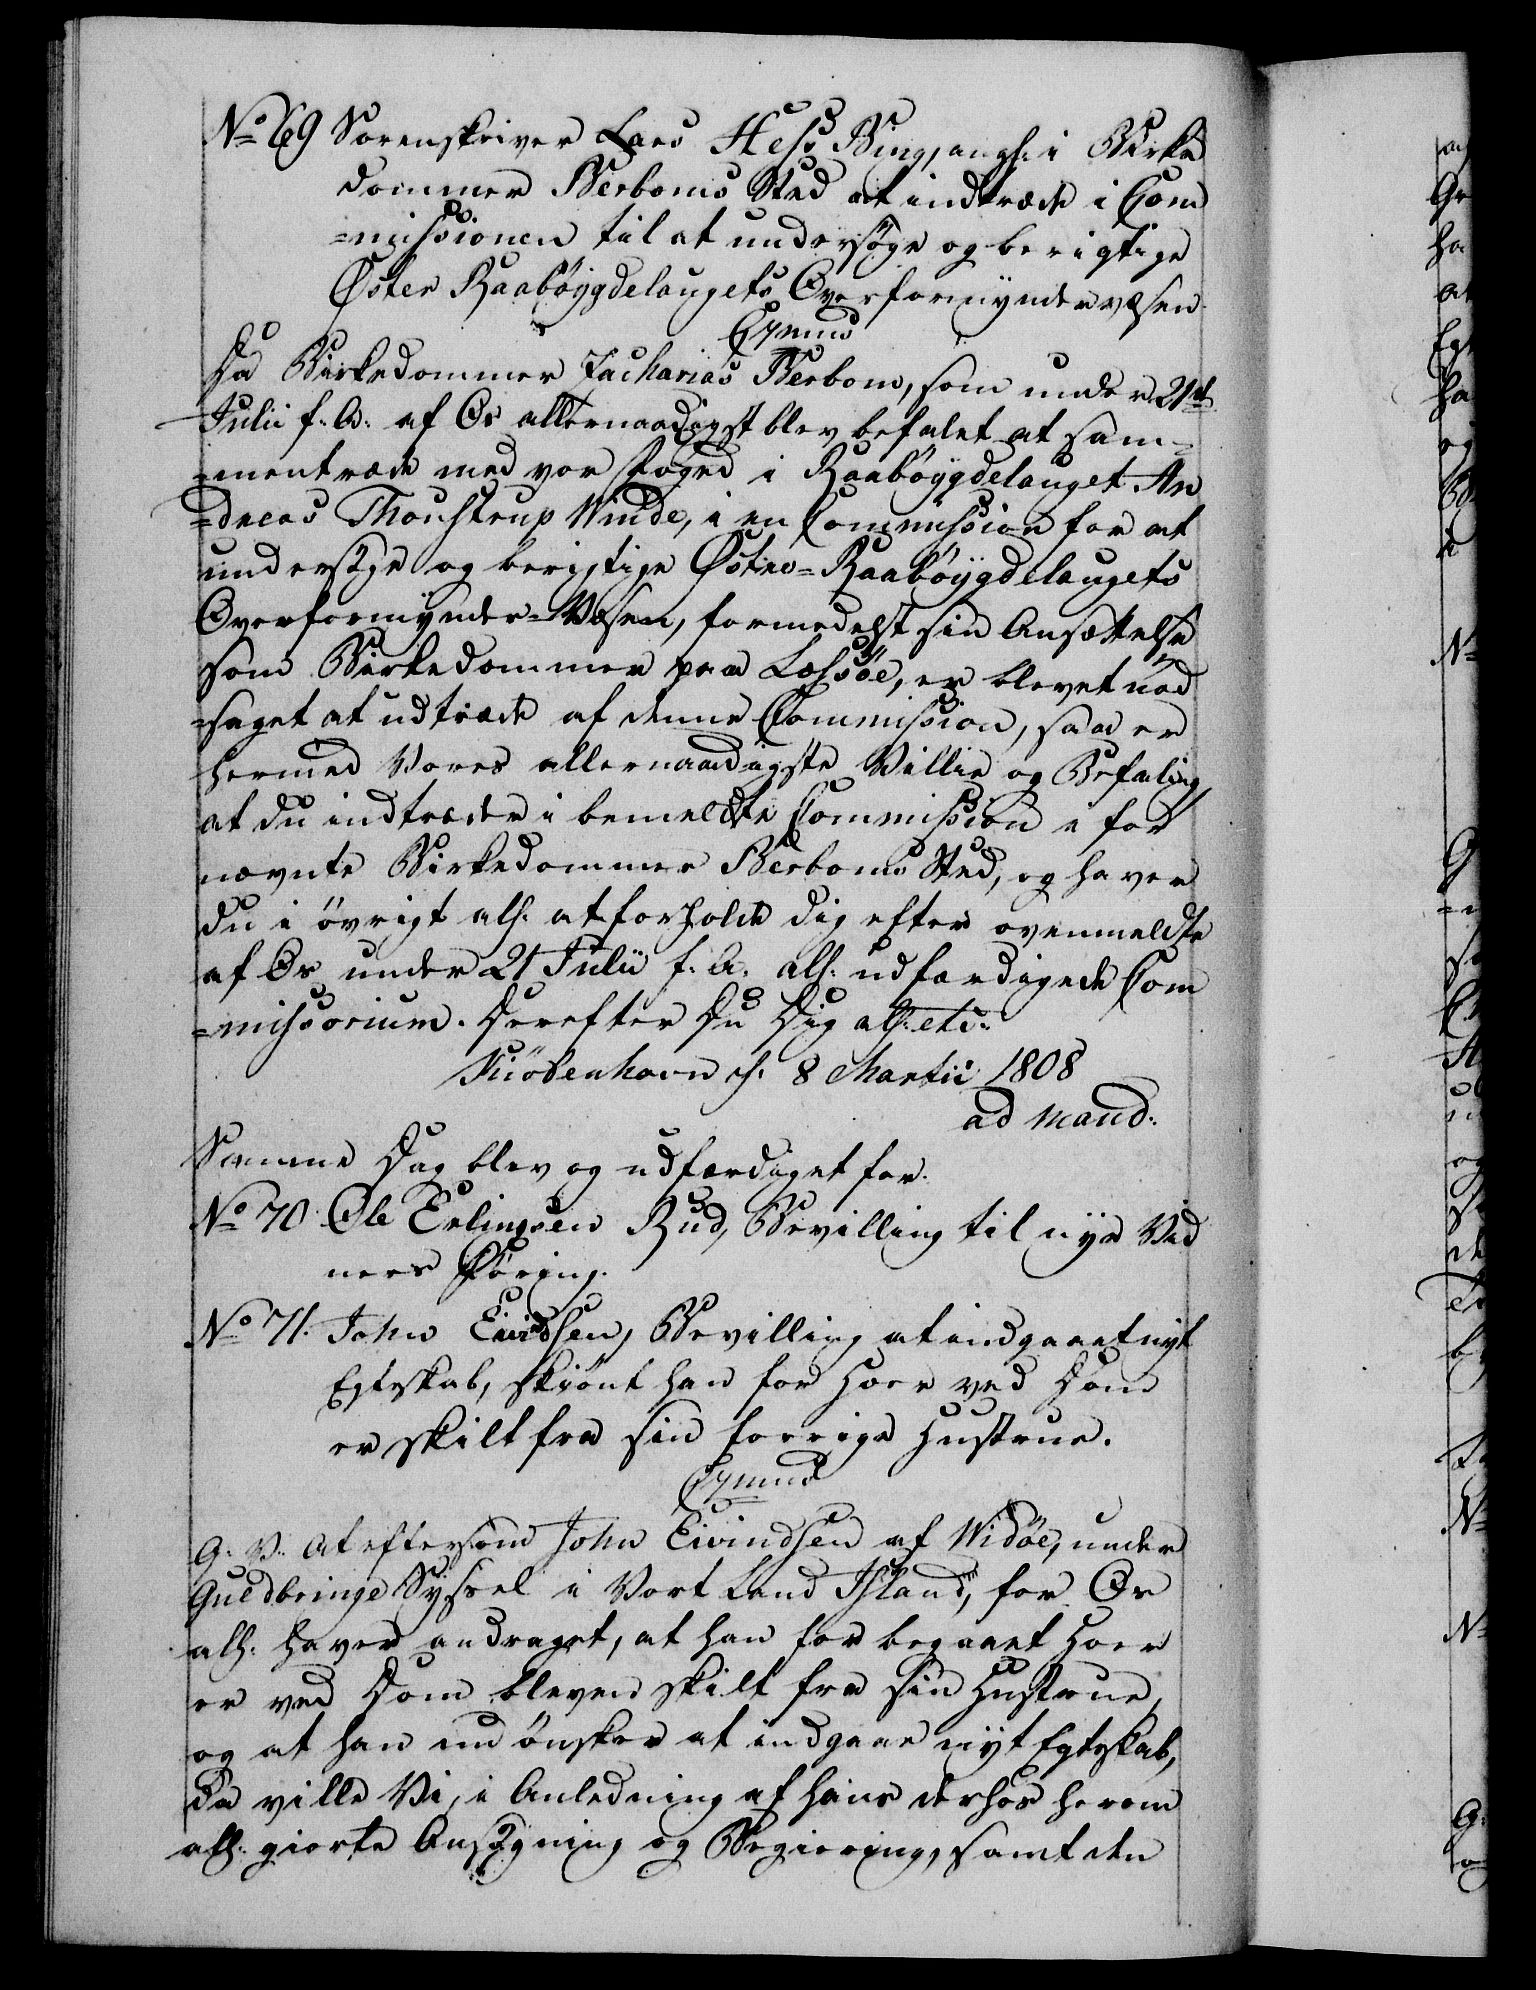 No 69 Sorenskriver Lars Hess Bing, angl: i Birke
dommer Berboms Sted at indtræde i Com
=missionen til at undersøge og berigtige
Øster Raabøygdelaugets Overformyndervæsen.
C7mus
Da Birkedommer Zacharias Berbom, som under 21de
Julii f. A. af Os allernaadigst blev befalet at sam=
=mentræde med vor Foged i Raabøygdelauget An
=dreas Thoustrup Winde, i en Commission for at
undersøge og berigtige Østre=Raabøygdelaugets
Overformynder=Væsen, formedelst sin Ansættelse
som Birkedommer paa Læssøe, er blevet nød
=saget at udtræde af denne Commission, saa er
hermed Vores allernaadigste Villie og Befaling,
at du indtræder i bemeldte Commission i for
nævnte Birkedommer Berboms Sted, og haver
du i øvrigt alh: at forholde dig efter ovenmeldte
af Os under 21 Julii f. A. alh: udfærdigede Com
=missorium. Derefter Du Dig alh: etc:
Kiøbenhavn d. 8 Martii 1808
ad mand:
Samme Dag blev og udfærdiget for.
No 70 Ole Erlingsen Rud, Bevilling til nye Vid
ners Føring.
No 71. John Eivindsen, Bevilling at indgaae nyt
Egteskab, skiønt han for Hoer ved Dom
er skilt fra sin forrige Hustrue.
C7mus
G. V. at eftersom John Eivindsen af Widøe, under
Guldbringe Syssel i Vort Land Island, for Os
alh: haver andraget, at han for begaaet Hoer
er ved Dom bleven skilt fra sin Hustrue,
og at han nu ønsker at indgaae nyt Egteskab,
da ville Vi, i Anledning af hans derhos herom
alh: giorte Ansøgning og Begiering, samt den